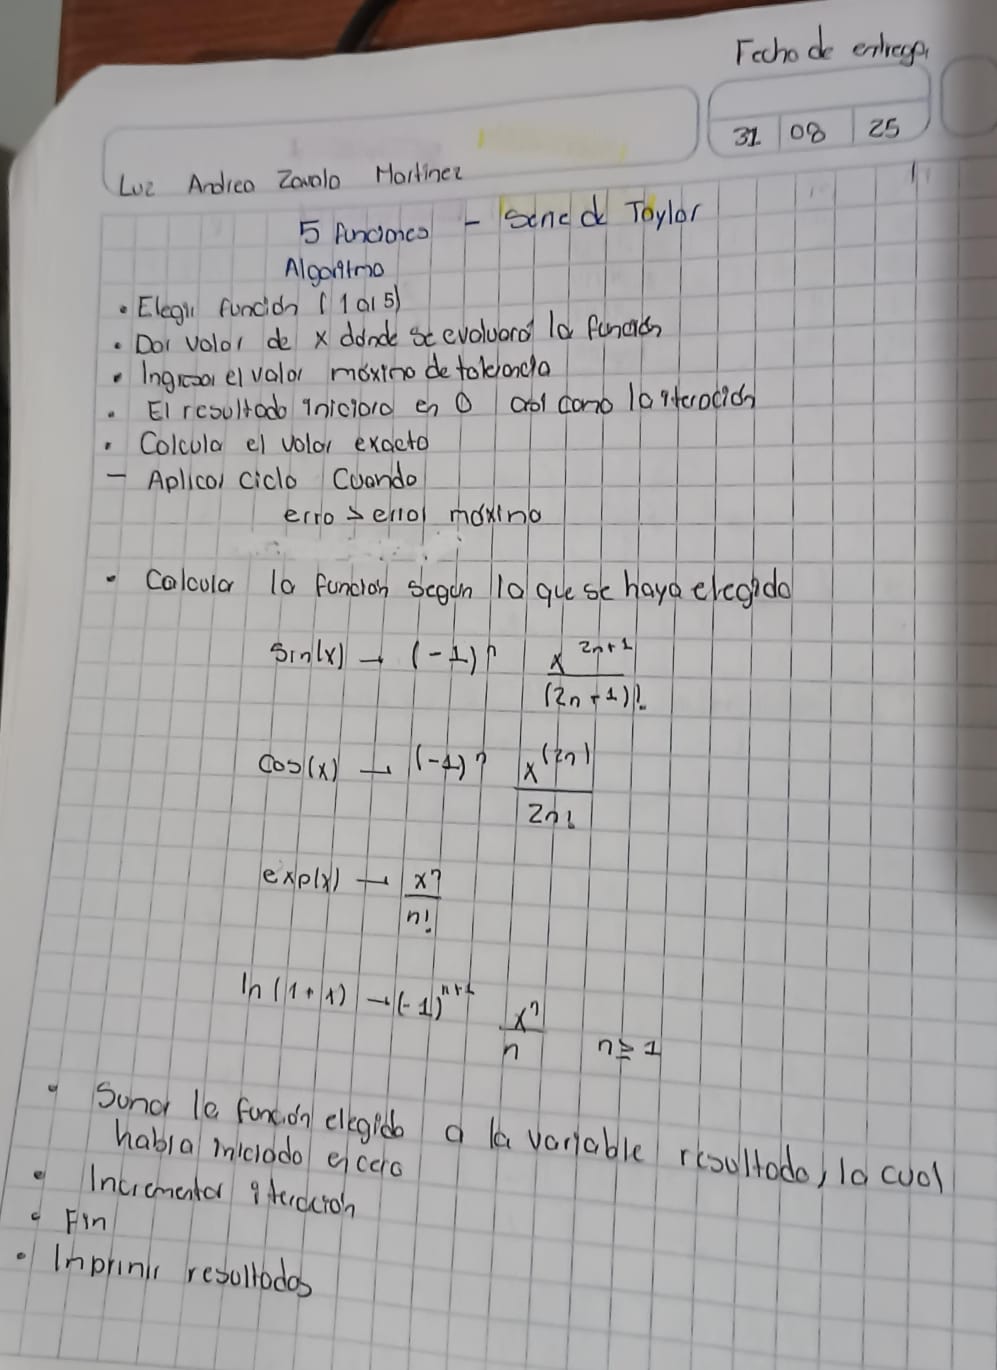 Fecha de entrega
31 08 25
Luz Andrea Zavala Martinez
5 funciones - Serie de Taylor
Algoritmo
• Elegir función (1 al 5)
• Dar valor de x donde se evaluará la función
• Ingresar el valor máximo de tolerancia
• El resultado iniciara en 0 así como la iteración
• Calcula el valor exacto
- Aplicar ciclo Cuando
erro > error máximo
• Calcular la función según la que se haya elegido
sin(x) → (-1)^n x^{2n+1} / (2n+1)!
cos(x) → (-1)^n x^{(2n)} / 2n!
exp(x) → x^n / n!
ln(1+x) → (-1)^{n+1} x^n / n n ≥ 1
• Sumar la función elegida a la variable resultado, la cual
había iniciado en cero
• Incrementar iteración
• Fin
• Inprimir resultados